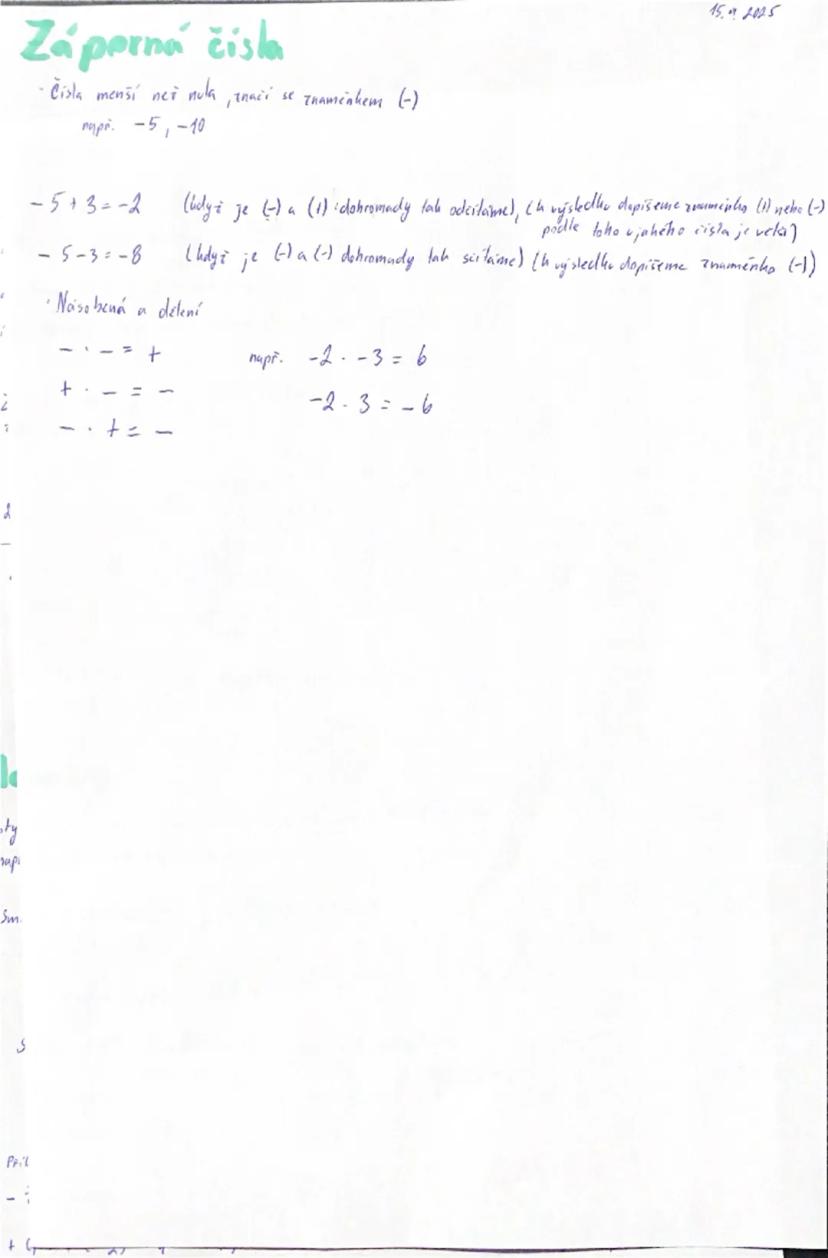 15.9.2025
Záporná čísla
· Čísla menší než nula, značí se znaménkem (-)
např. -5, -10
-5+3=-2 (když je (-) a (+) dohromady tak odčítáme), (k výsledku dopíšeme znaménko (+) nebo (-)
podle toho u jakého čísla je větší)
-5-3=-8 (když je (-) a (-) dohromady tak sčítáme) (k výsledku dopíšeme znaménko (-))
· Násobená a dělení
- · - = + např. -2 · -3 = 6
+ · - = - -2 · 3 = -6
- · + = -